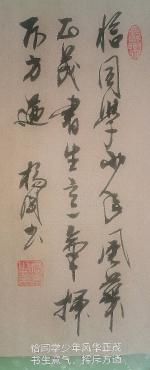 恰同學少年風華
正茂書生意氣揮
斥方遒
恰同学少年风华正茂
书生意气，挥斥方遒